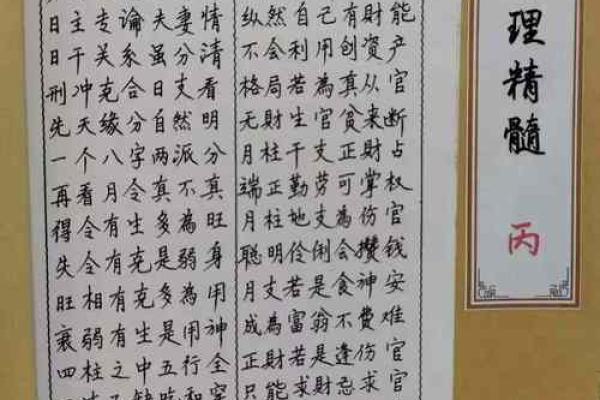 日主专论夫妻情
日干关系虽分清
刑冲克合日支看
先天缘分自然明
一个八字两派分
再看月令真不真
得令有生多為旺
失令有克是弱身
旺相有克多為用
衰弱有生是用神
四柱之中五行全
缺吃和穿
纵然自己有財能
不会利用创资产
格局若為真从官
无財生官贫来断
月柱干支正財占
端正勤劳可掌权
月柱地支為伤官
聪明伶俐会攒钱
月支若是食神安
成為富翁不费难
正財若是逢伤官
只能求財忌求官
理精髓
丙